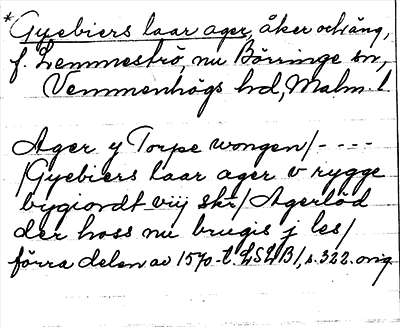 *Gyebiers laar ager, åker och äng,
f. Lemmeströ, nu Börringe sn,
Vemmenhögs hd, Malm. l.
Ager y Torpe wongen/ - - - -
/Gyebiers laar ager v rygge
bygiordt viij skr/ Agerlöd
der hoss nu brugis j les/
förra delen av 1570-t. LSLB1, s. 322. orig